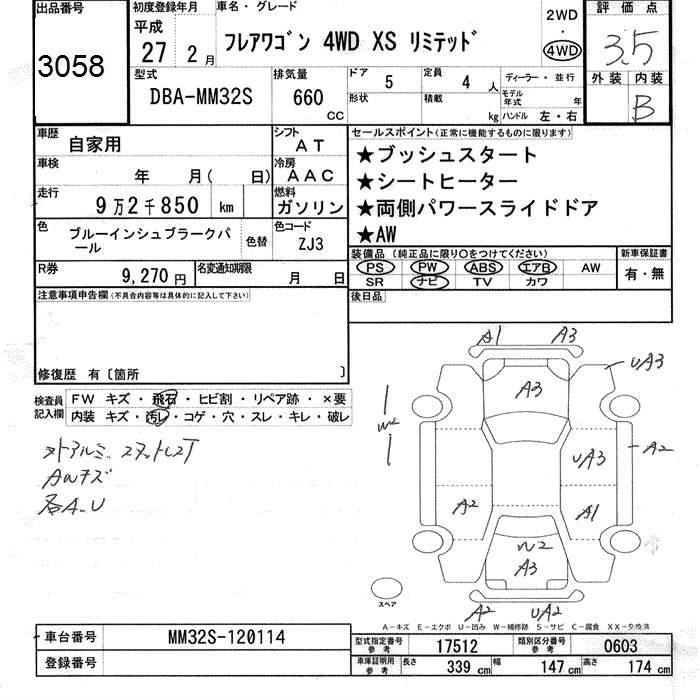 出品番号
3058
初度登録年月
平成
27 2 月
車名・グレード
フレアワゴン 4WD XS リミテッド
2WD
・
4WD
評価点
3.5
外装 内装
B
型式
DBA-MM32S
排気量
660
CC
ドア 5
定員 4 人
形状
積載 kg
ディーラー・並行
モデル年式 年
ハンドル 左・右
車歴 自家用
シフト AT
車検 年 月( 日)
冷房 AAC
走行 9万2千850 km
燃料 ガソリン
色 ブルーインシュブラークパール
色替
色コード ZJ3
R券 9,270 円
名変通知期限 月 日
セールスポイント(正常に機能するものに限ります)
★プッシュスタート
★シートヒーター
★両側パワースライドドア
★AW
装備品(純正品に限り○をつけてください)
PS PW ABS エアB AW
SR ナビ TV カワ
新車保証書
有・無
後日品
注意事項申告欄(不具合内容等は具体的に記入して下さい)
修復歴 有〔箇所 〕
検査員記入欄
FW キズ・飛石・ヒビ割・リペア跡・×要
内装 キズ・汚レ・コゲ・穴・スレ・キレ・破レ
AWキズ
各A-U
A1 A3
UA3
A3
W2
UA3
A2
A2
A1
W2
A3
A2 UA2
スペア
A－キズ E－エクボ U－凹み W－補修跡 S－サビ C－腐食 XX－交換済
車台番号 MM32S-120114
登録番号
型式指定番号参考 17512
類別区分番号参考 0603
車庫証明用参考 長さ 339 cm 幅 147 cm 高さ 174 cm